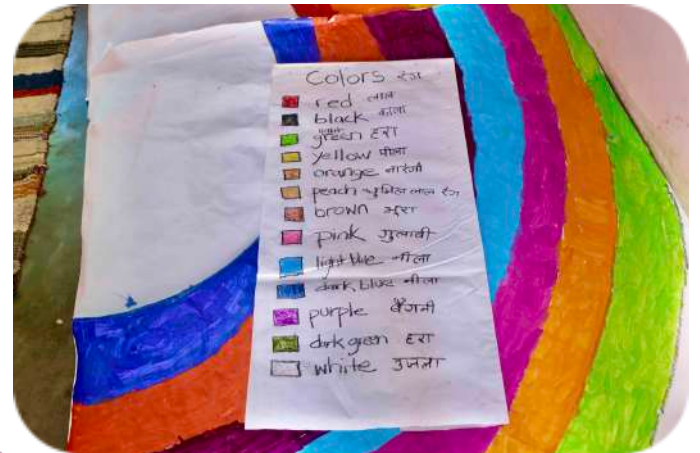 Colors रंग
red लाल
black काला
light
green हरा
yellow पीला
orange नारंगी
peach लाल रंग
brown भूरा
pink गुलाबी
light blue नीला
dark blue नीला
purple बैंगनी
dark green हरा
white उजला